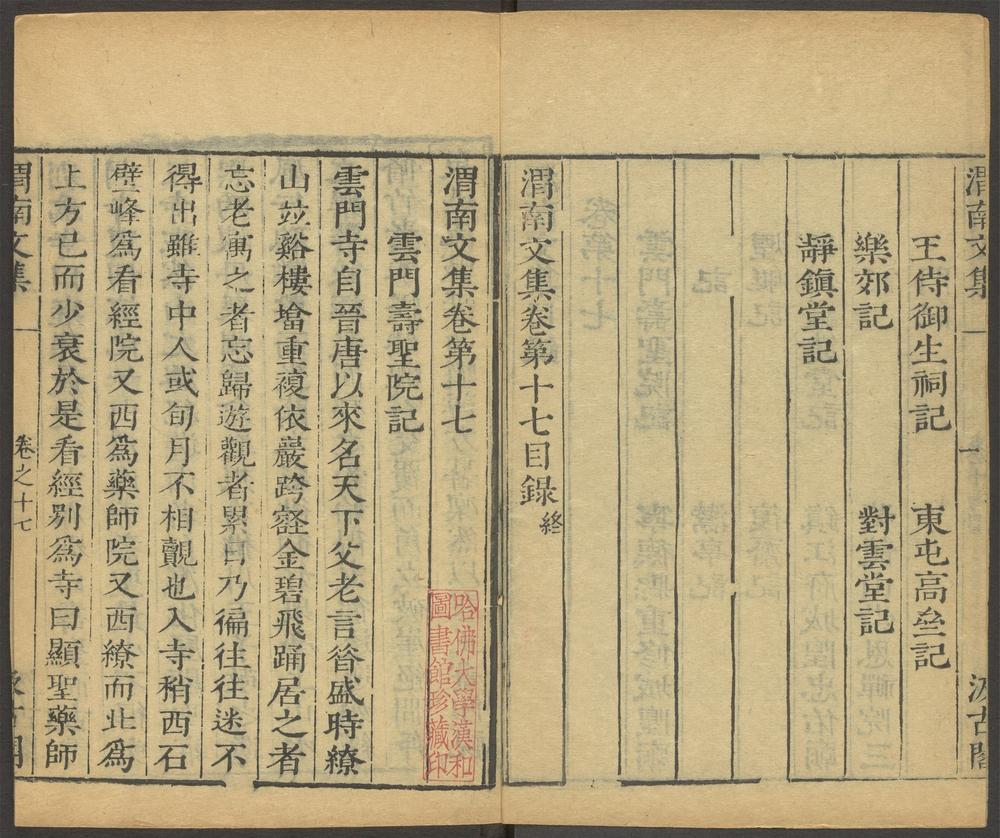 渭南文集 一 汲古閣
王侍御生祠記 東屯高壘記
樂郊記 對雲堂記
靜鎮堂記
渭南文集卷第十七目録終
渭南文集卷第十七
雲門壽聖院記
雲門寺自晉唐以來名天下父老言昝盛時繚
山竝谿樓塔重複依巖跨壑金碧飛踊居之者
忘老寓之者忘歸遊觀者累日乃徧往往迷不
得出雖寺中人或旬月不相覿也入寺稍西石
壁峰爲看經院又西爲藥師院又西繚而北爲
上方已而少衰於是看經別爲寺曰顯聖藥師
渭南文集 卷之十七
哈佛大學漢和
圖書館珍藏印